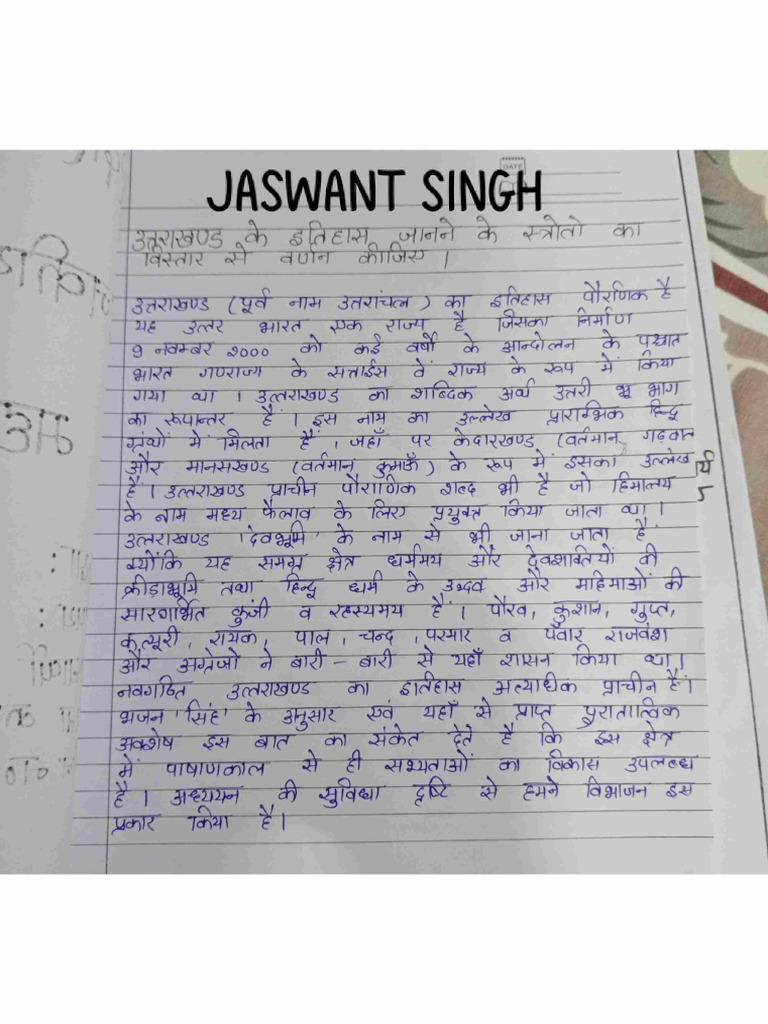 DATE
JASWANT SINGH
उत्तराखण्ड के इतिहास जानने के स्त्रोतो का
विस्तार से वर्णन कीजिए ।
उत्तराखण्ड (पूर्व नाम उतरांचल) का इतिहास पौरणिक है
यह उत्तर भारत एक राज्य है जिसका निर्माण
9 नवम्बर 2000 को कई वर्षो के आन्दोलन के पश्चात
भारत गणराज्य के सत्ताईस वें राज्य के रूप में किया
गया था । उत्तराखण्ड का शब्दिक अर्थ उत्तरी भू भाग
का रूपान्तर है । इस नाम का उल्लेख प्रारम्भिक हिन्दु
ग्रंथों में मिलता है , जहाँ पर केदारखण्ड (वर्तमान गढ़वाल
और मानसखण्ड (वर्तमान कुमाऊँ) के रूप में इसका उल्लेख
है । उत्तराखण्ड प्राचीन पौराणिक शब्द भी है जो हिमालय
के नाम मध्य फैलाव के लिए प्रयुक्त किया जाता था ।
उत्तराखण्ड 'देवभूमि' के नाम से भी जाना जाता है
क्योंकि यह समग्र क्षेत्र धर्ममय और देवशक्तियों की
क्रीड़ाभूमि तथा हिन्दु धर्म के उद्भव और महिमाओं की
सारगर्भित कुंजी व रहस्यमय है । पौरव, कुशान, गुप्त,
कत्यूरी, रायक, पाल, चन्द, परमार व पँवार राजवंश
और अग्रेजो ने बारी – बारी से यहाँ शासन किया था ।
नवगठित उत्तराखण्ड का इतिहास अत्याधिक प्राचीन है ।
भजन 'सिंह' के अनुसार एवं यहाँ से प्राप्त पुरातात्विक
अवशेष इस बात का संकेत देते है कि इस क्षेत्र
में पाषाणकाल से ही सभ्यताओं का विकास उपलब्ध
है । अध्ययन की सुविधा दृष्टि से हमने विभाजन इस
प्रकार किया है ।